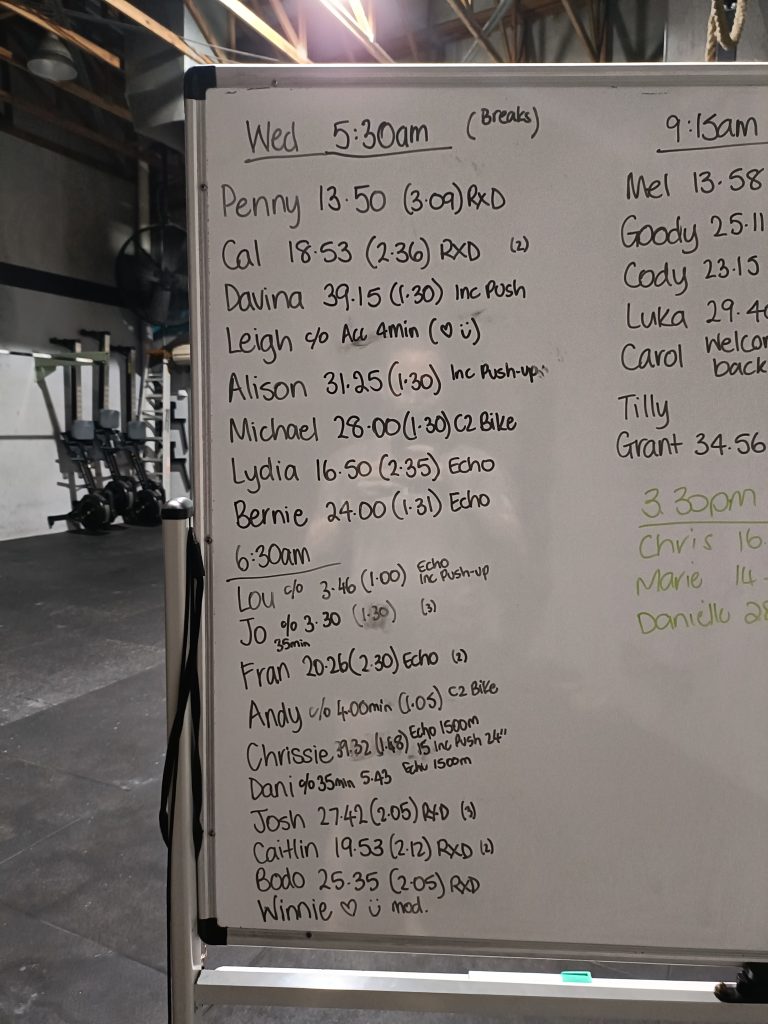 Wed 5:30am (Breaks)
Penny 13.50 (3.09) RXD
Cal 18.53 (2.36) RXD (2)
Davina 39.15 (1.30) Inc Push
Leigh c/o Acc 4min (♡ ü)
Alison 31.25 (1.30) Inc Push-up
Michael 28.00 (1.30) C2 Bike
Lydia 16.50 (2.35) Echo
Bernie 24.00 (1.31) Echo
6:30am
Lou c/o 3.46 (1.00) Echo
Inc Push-up
Jo c/o 3.30 (1.30) (3)
35min
Fran 20.26 (2.30) Echo (2)
Andy c/o 4.00min (1.05) C2 Bike
Chrissie 39.32 Echo 1500m
15 Inc Push 24"
Dani c/o 35min 5.43 Echo 1500m
Josh 27.42 (2.05) RXD (3)
Caitlin 19.53 (2.12) RXD (2)
Bodo 25.35 (2.05) RXD
Winnie ♡ ü mod.
9:15am
Mel 13.58
Goody 25.11
Cody 23.15
Luka 29.4
Carol Welcom
back
Tilly
Grant 34.56
3.30pm
Chris 16.
Marie 14.
Danielle 28